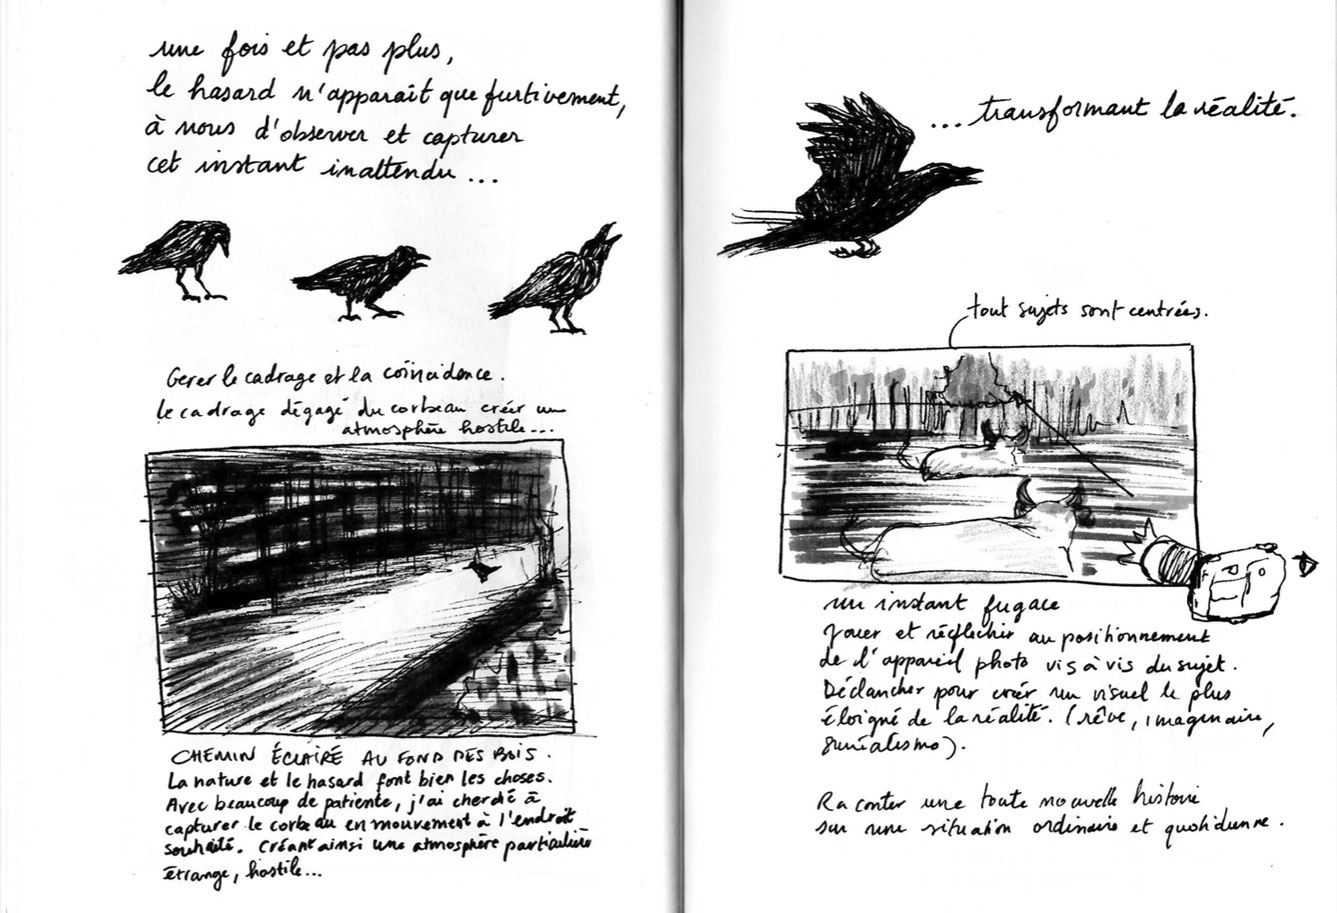 une fois et pas plus,
le hasard n'apparaît que furtivement,
à nous d'observer et capturer
cet instant inattendu ...
Gerer le cadrage et la coïncidence.
le cadrage dégagé du corbeau créer un
atmosphère hostile...
CHEMIN ÉCLAIRÉ AU FOND DES BOIS.
La nature et le hasard font bien les choses.
Avec beaucoup de patiente, j'ai cherché à
capturer le corbeau en mouvement à l'endroit
souhaité. Créant ainsi une atmosphère particulière
étrange, hostile...
... transformant la réalité.
tout sujets sont centrées.
un instant fugace
Jouer et réflechir au positionnement
de l'appareil photo vis à vis du sujet.
Déclancher pour créer un visuel le plus
éloigné de la réalité. (rêve, imaginaire,
suréalismo).
Raconter une toute nouvelle histoire
sur une situation ordinaire et quotidienne.